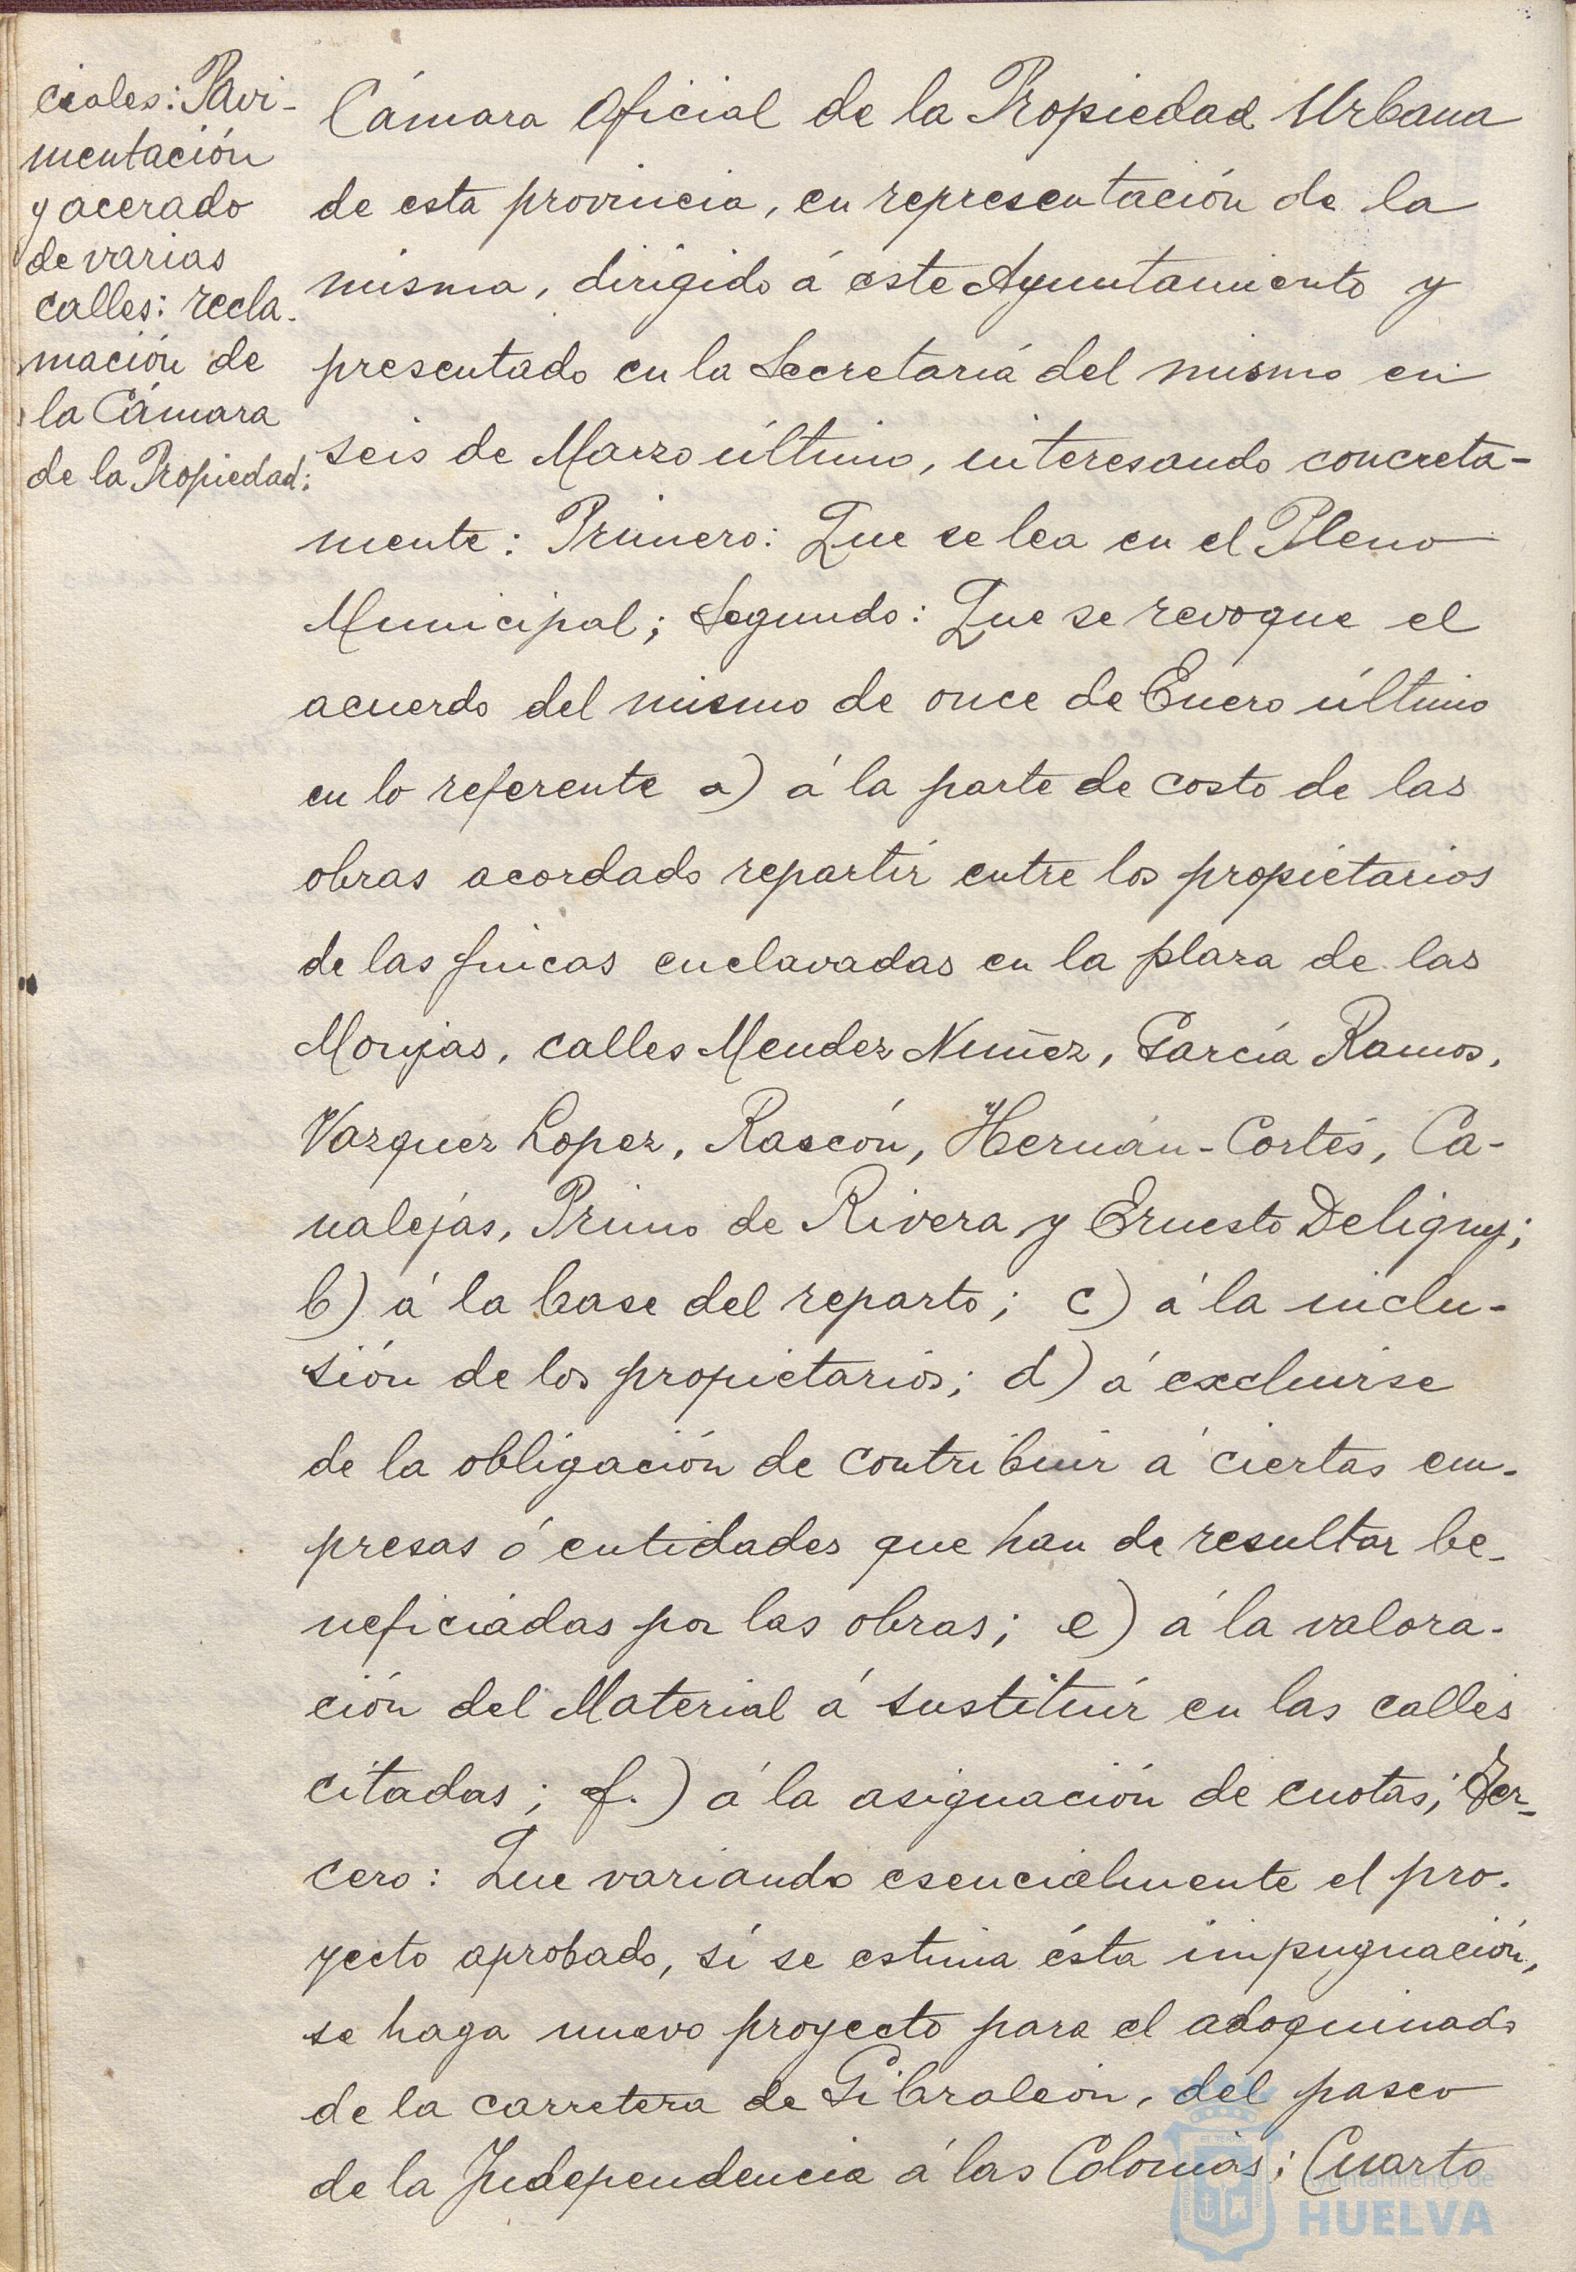 ciales: Pavi-
mentación
y acerado
de varias
calles: recla-
mación de
la Cámara
de la Propiedad:
Cámara Oficial de la Propiedad Urbana
de esta provincia, en representación de la
misma, dirigido á este Ayuntamiento y
presentado en la Secretaría del mismo en
seis de Marzo último, interesando concreta-
mente: Primero: Que se lea en el Pleno
Municipal; Segundo: Que se revoque el
acuerdo del mismo de once de Enero último
en lo referente a) á la parte de costo de las
obras acordado repartir entre los propietarios
de las fincas enclavadas en la plaza de las
Monjas, calles Mendez Nuñez, García Ramos,
Vazquez Lopez, Rascón, Hernán-Cortés, Ca-
nalejas, Primo de Rivera y Ernesto Deligny;
b) á la base del reparto; c) á la inclu-
sión de los propietarios; d) á excluirse
de la obligación de contribuir á ciertas em-
presas ó entidades que han de resultar be-
neficiadas por las obras; e) á la valora-
ción del Material á sustituír en las calles
citadas; f.) á la asignación de cuotas; Ter-
cero: Que variando esencialmente el pro-
yecto aprobado, sí se estima ésta impugnación,
se haga nuevo proyecto para el adoquinado
de la carretera de Gibraleón, del paseo
de la Independencia á las Colonias; Cuarto
Ayuntamiento de
HUELVA